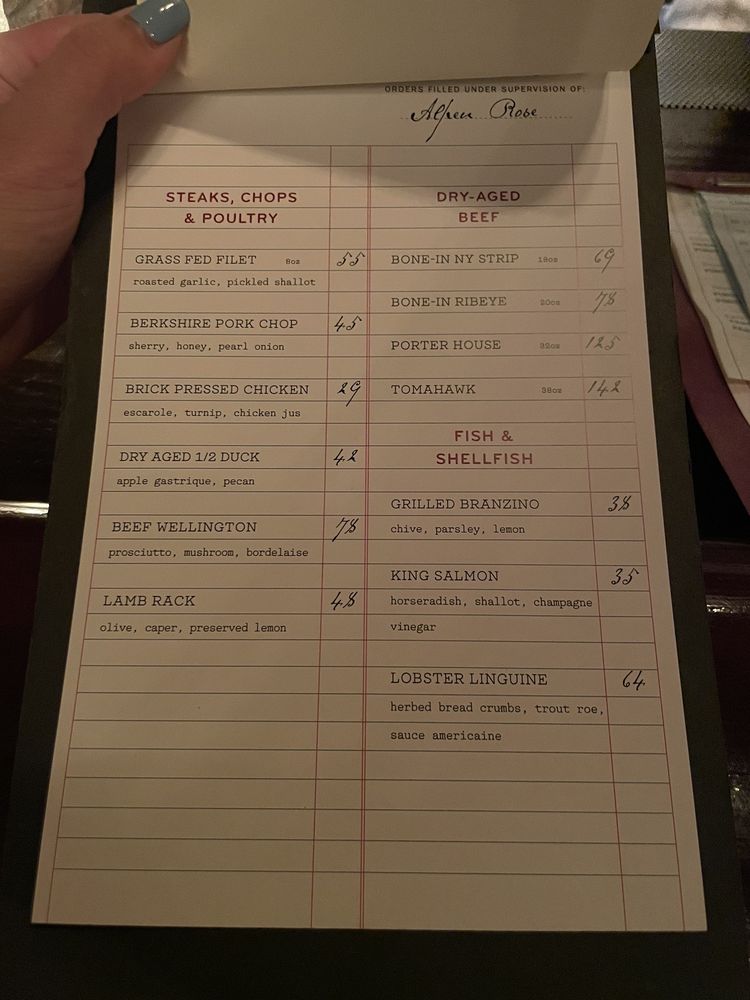 ORDERS FILLED UNDER SUPERVISION OF:
Alpen Rose
STEAKS, CHOPS
& POULTRY
GRASS FED FILET 8oz 55
roasted garlic, pickled shallot
BERKSHIRE PORK CHOP 45
sherry, honey, pearl onion
BRICK PRESSED CHICKEN 29
escarole, turnip, chicken jus
DRY AGED 1/2 DUCK 42
apple gastrique, pecan
BEEF WELLINGTON 78
prosciutto, mushroom, bordelaise
LAMB RACK 48
olive, caper, preserved lemon
DRY-AGED
BEEF
BONE-IN NY STRIP 18oz 69
BONE-IN RIBEYE 20oz 78
PORTER HOUSE 32oz 125
TOMAHAWK 38oz 142
FISH &
SHELLFISH
GRILLED BRANZINO 38
chive, parsley, lemon
KING SALMON 35
horseradish, shallot, champagne
vinegar
LOBSTER LINGUINE 64
herbed bread crumbs, trout roe,
sauce americaine